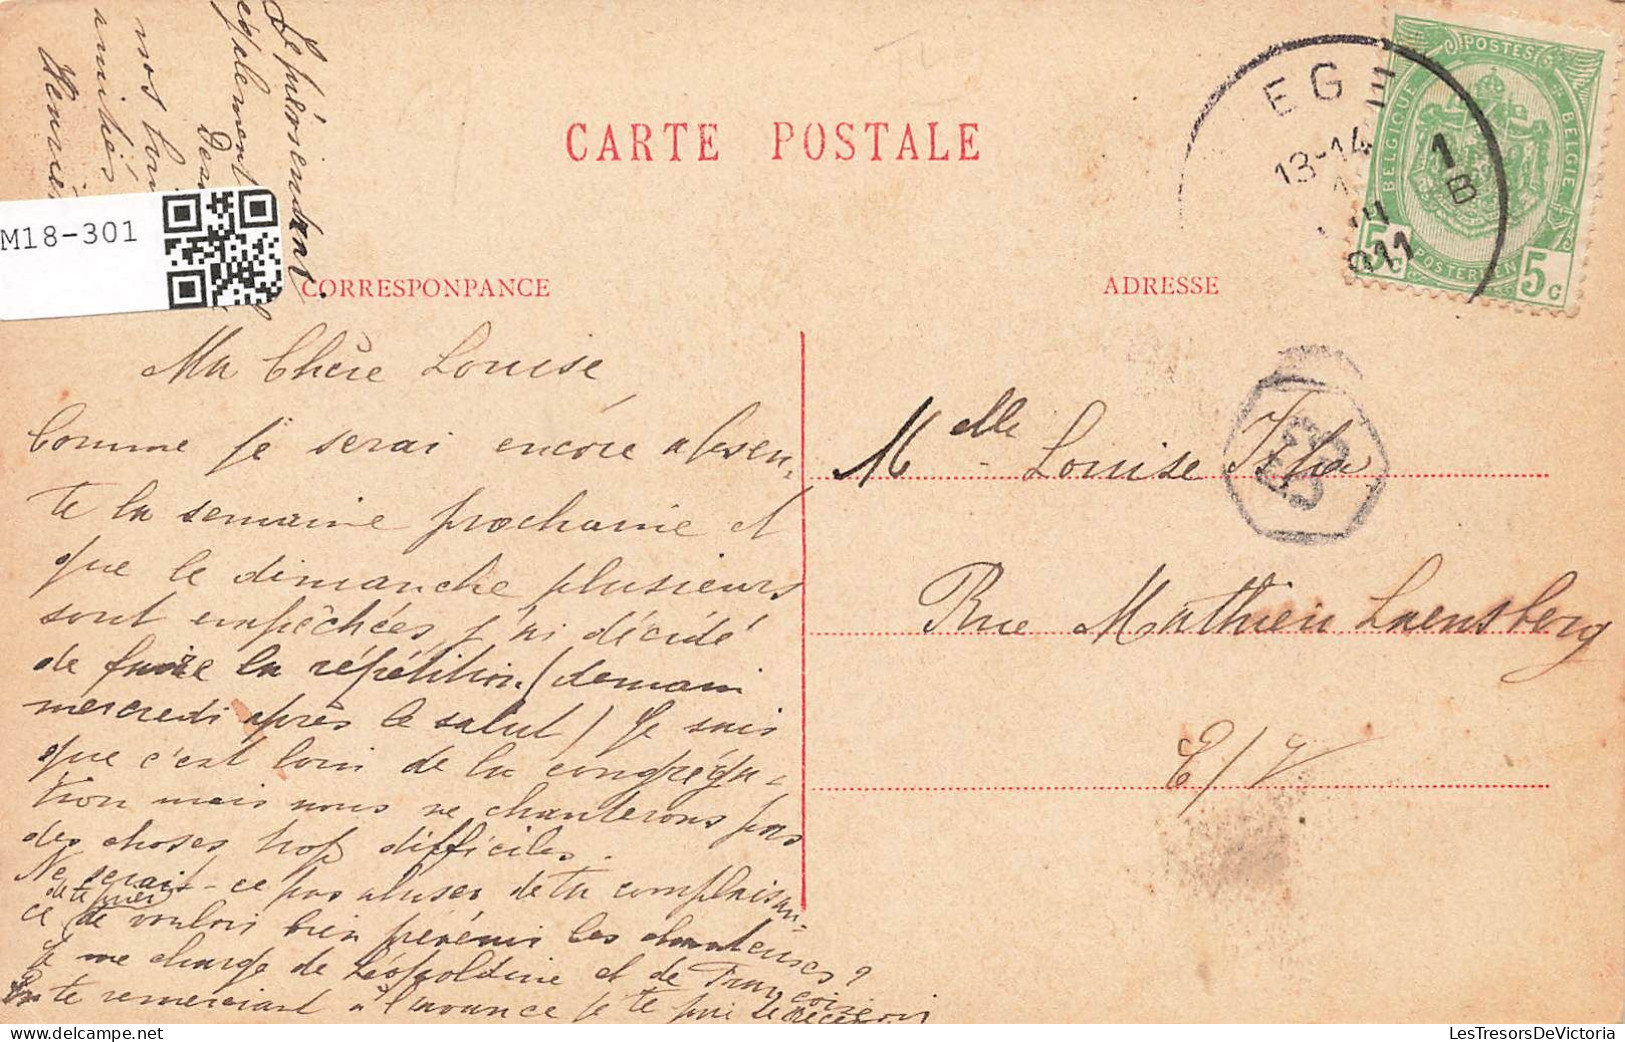 CARTE POSTALE
CORRESPONPANCE
ADRESSE
M18-301
POSTES
BELGIQUE
BELGIE
POSTERIJEN
5c
5c
EGE
13-14
1
B
911
Ma Chère Louise
Comme je serai encore absen-
te la semaine prochaine et
que le dimanche plusieurs
sont empêchées, j'ai décidé
de faire la répétition (demain
mercredi après le salut) Je sais
que c'est loin de la congréga-
tion mais nous ne chanterons pas
des choses trop difficiles.
Ne serait-ce pas abuser de ta complaisan-
ce (de te prier
de vouloir bien prévenir les chanteuses?
Je me charge de Léopoldine et de Françoise
En te remerciant à l'avance je te prie de recevoir
également
nos
amitiés
Le présendant
Melle Louise
Rue Mathieu Laensberg
E/V
LesTresorsDeVictoria.com